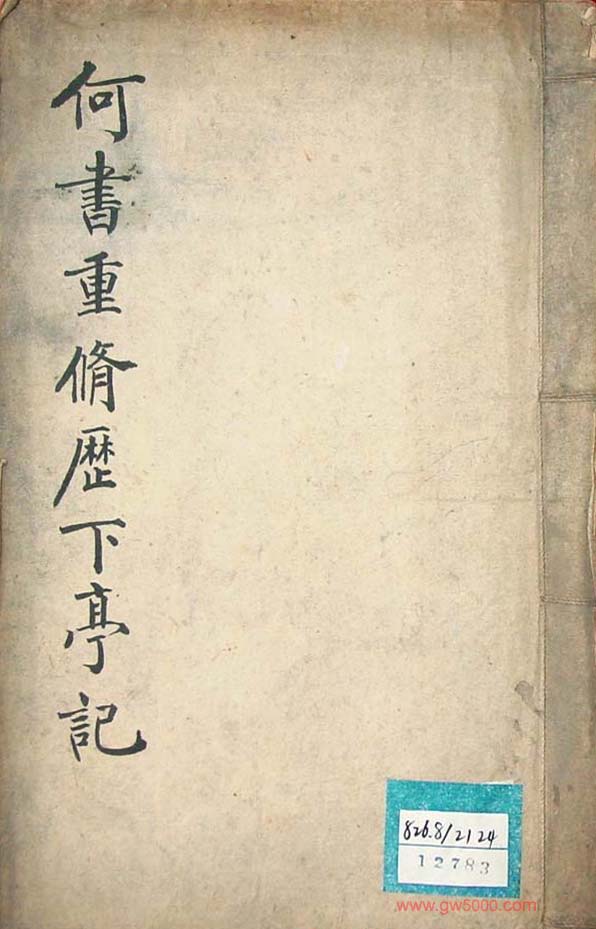 何書重脩歷下亭記
826.8/2124
12783
www.gw5000.com